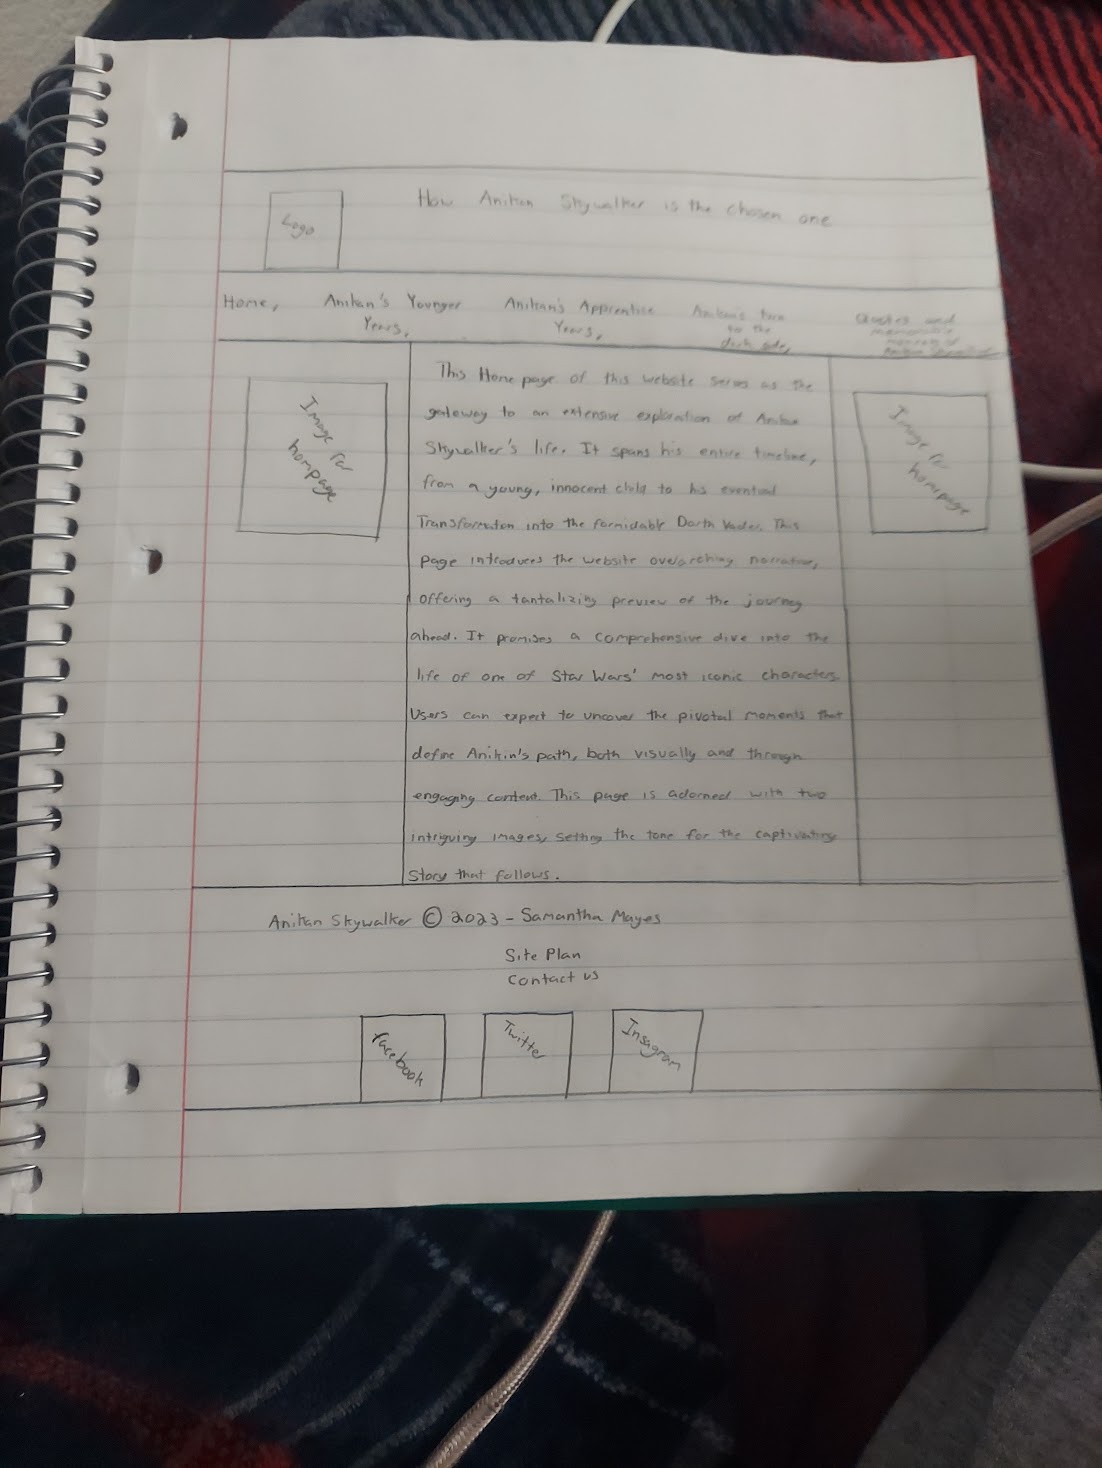 How Anikan Skywalker is the chosen one
Logo
Home,
Anikan's Younger
Years,
Anikan's Apprentice
Years,
Anikan's turn
to the
dark side,
Quotes and
memorable
moments of
Anikan Skywalker
Image for
homepage
This Home page of this website serves as the
gateway to an extensive exploration of Anikan
Skywalker's life. It spans his entire timeline,
from a young, innocent child to his eventual
Transformation into the formidable Darth Vader. This
page introduces the website overarching narrative,
offering a tantalizing preview of the journey
ahead. It promises a comprehensive dive into the
life of one of Star Wars' most iconic characters.
Users can expect to uncover the pivotal moments that
define Anikin's path, both visually and through
engaging content. This page is adorned with two
intriguing images, setting the tone for the captivating
Story that follows.
Image for
homepage
Anikan Skywalker © 2023 - Samantha Mayes
Site Plan
Contact us
Facebook
Twitter
Insagram